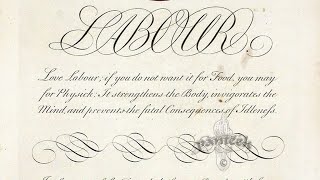 LABOUR
Love Labour; if you do not want it for Food, you may
for Physick: It strengthens the Body, invigorates the
Mind, and prevents the fatal Consequences of Idleneſs.